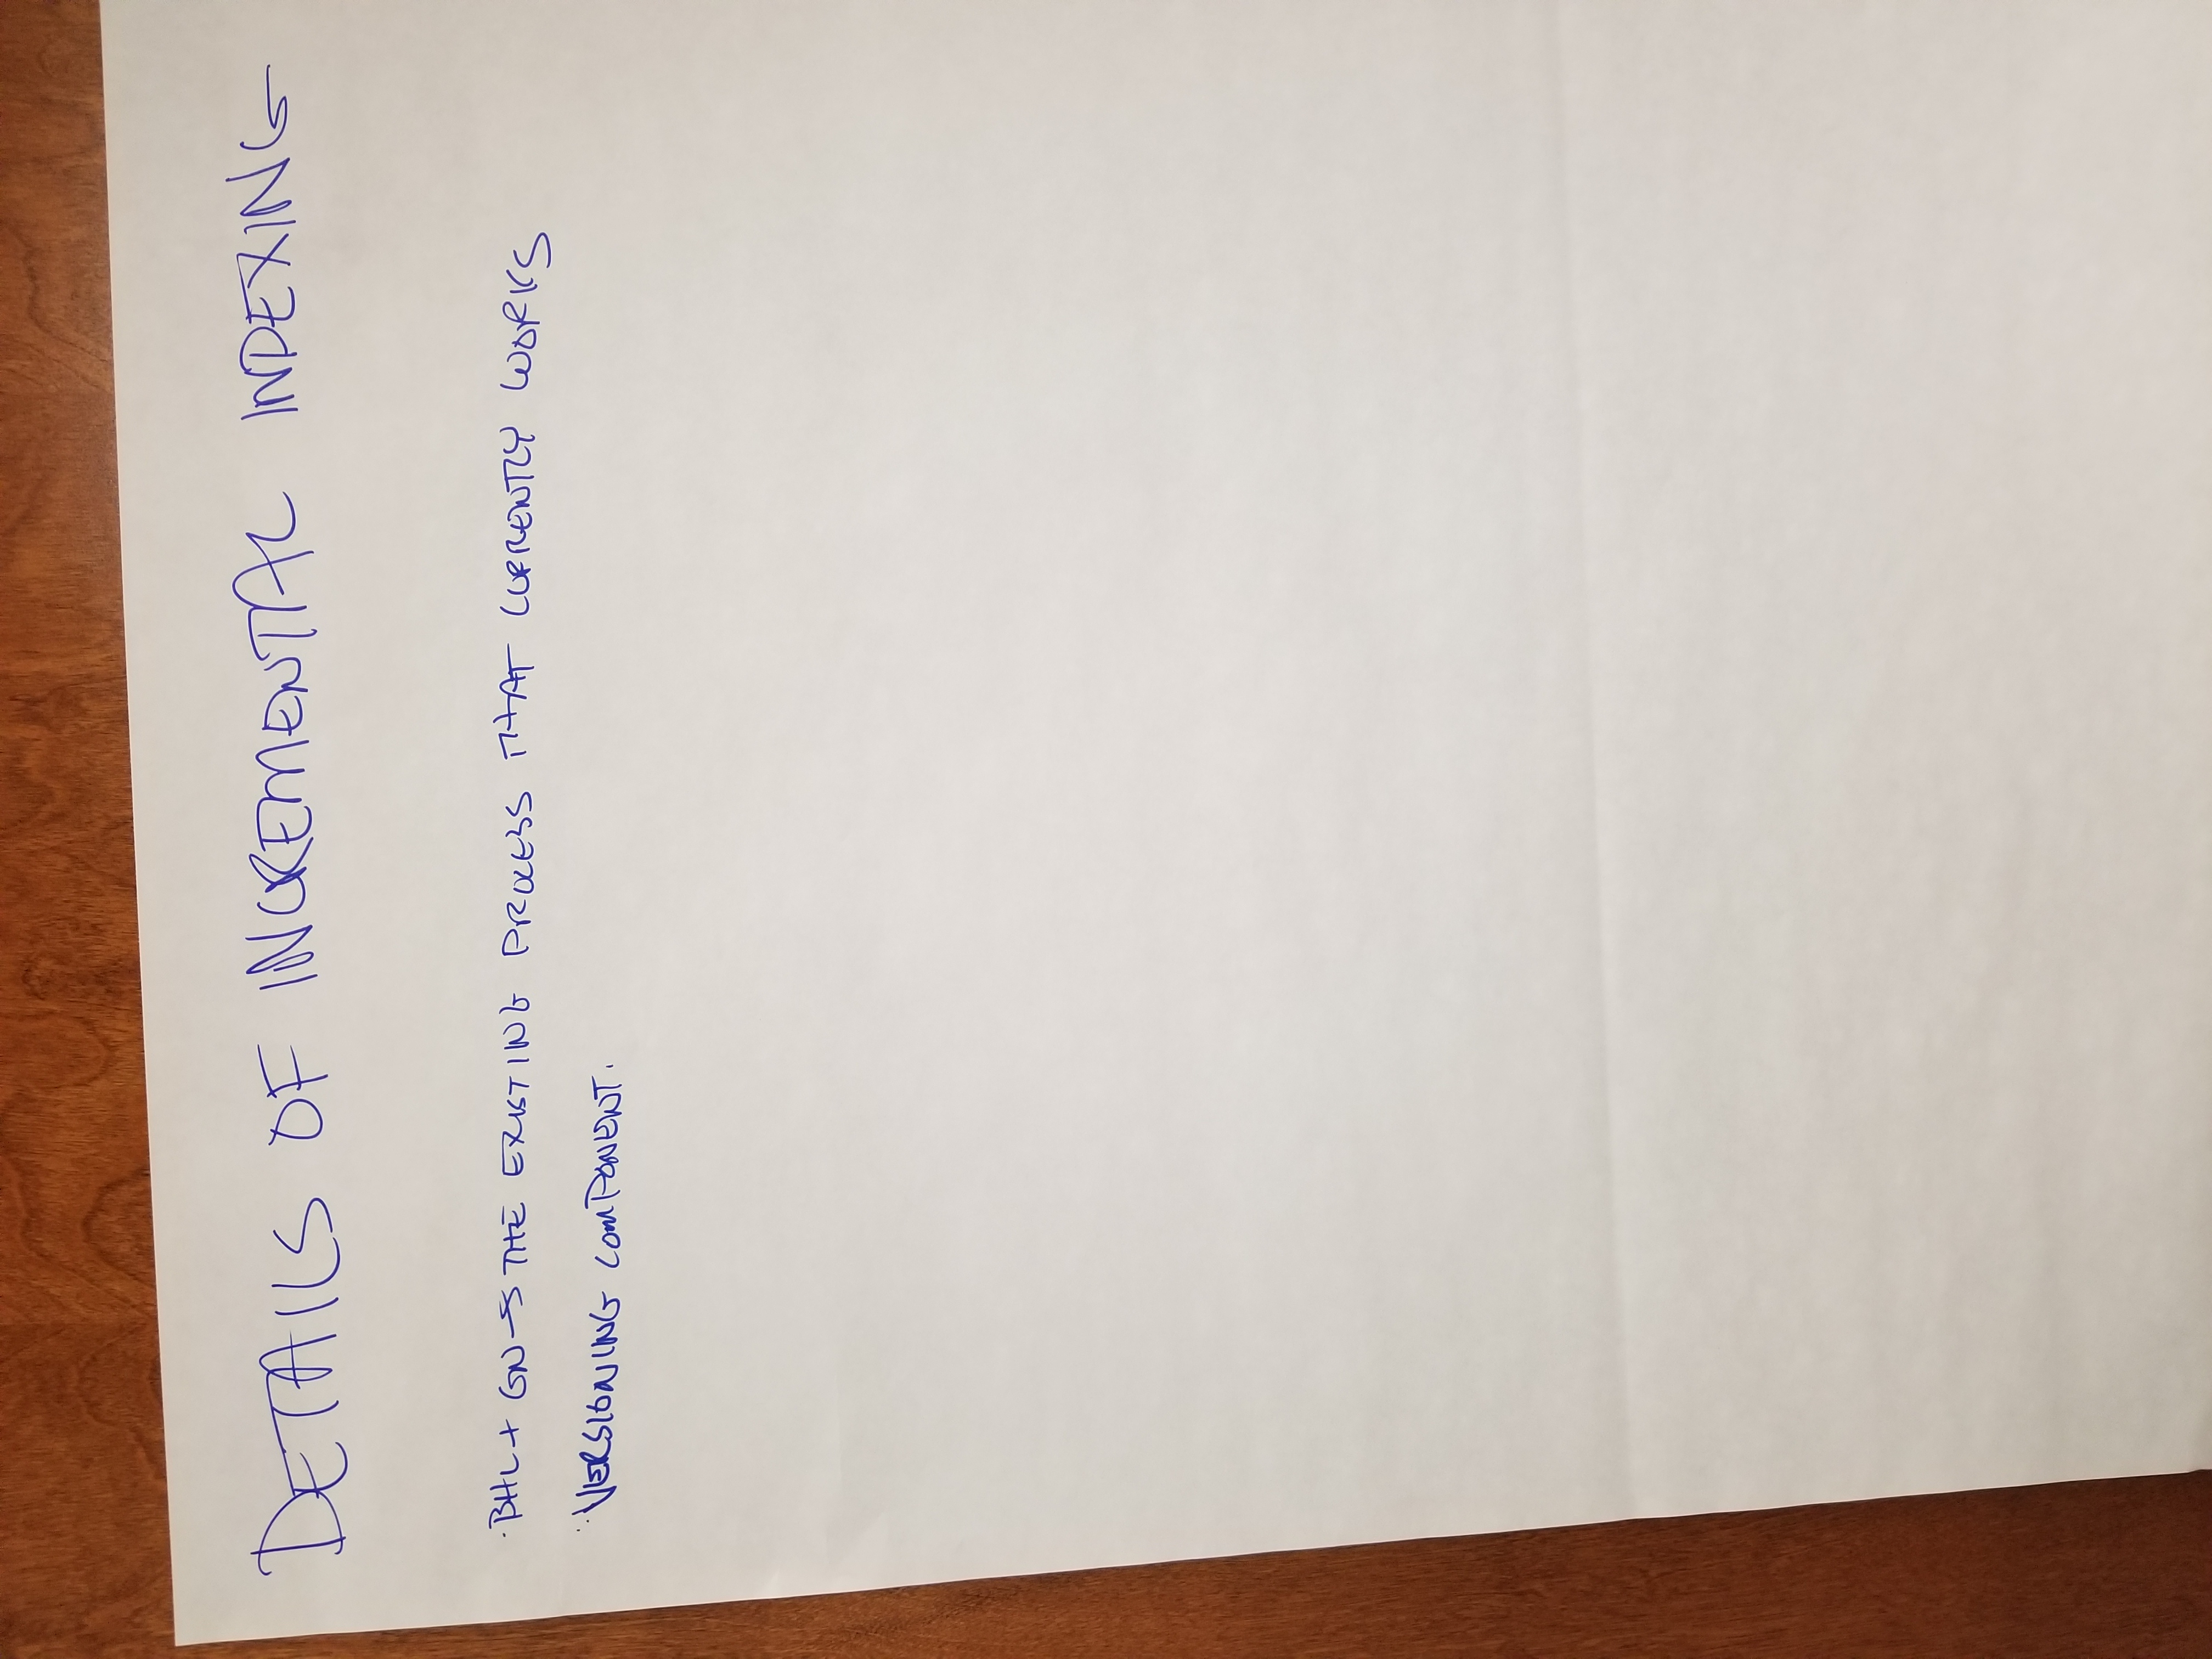 DETAILS OF INCREMENTAL INDEXING
· BHL + GN → THE EXISTING PROCESS THAT CURRENTLY WORKS
· VERSIONING COMPONENT.